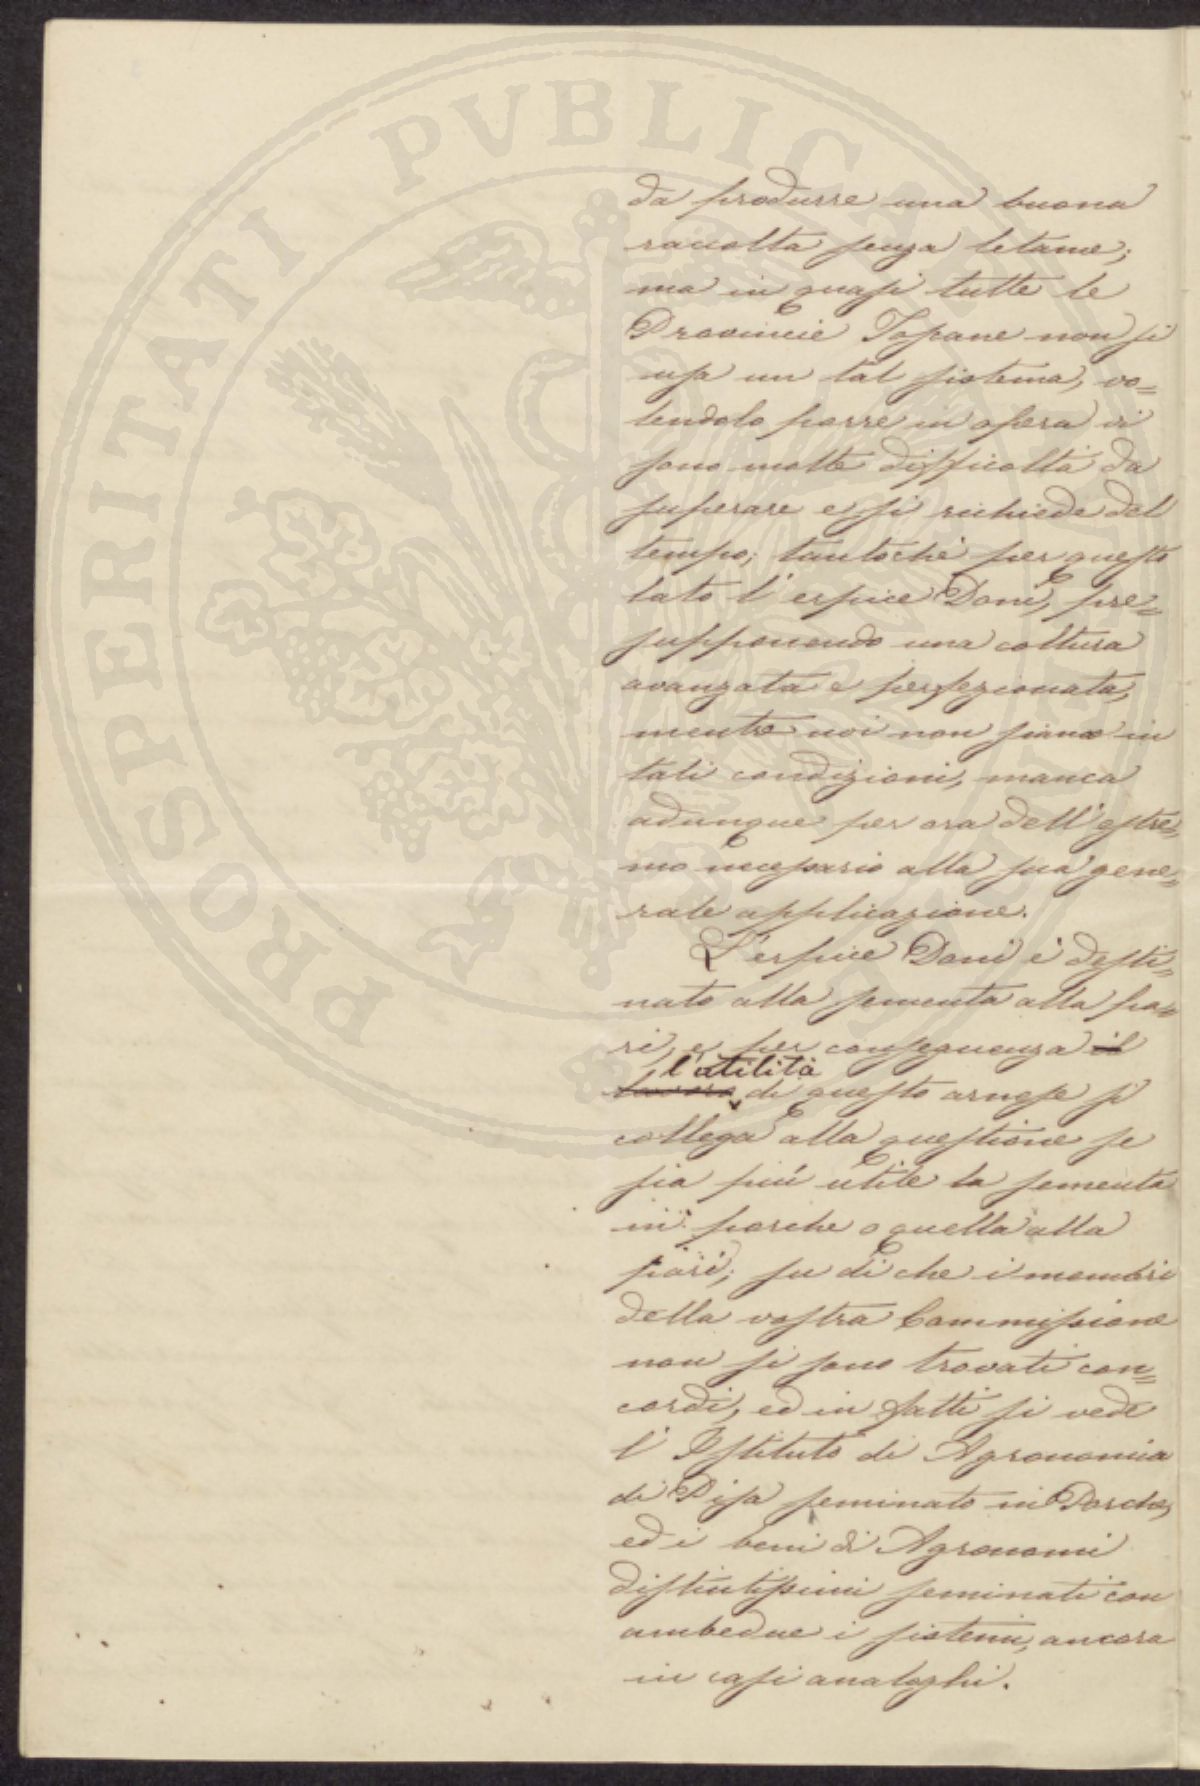 PROSPERITATI PVBLICAE
da produrre una buona
raccolta senza letame;
ma in quasi tutte le
Provincie Toscane non si
usa un tal sistema, vo=
lendolo porre in opera vi
sono molte difficoltà da
superare e si richiede del
tempo; tantochè per questo
lato l'erpice Doni, pre=
supponendo una coltura
avanzata e perfezionata,
mentre noi non siamo in
tali condizioni, manca
adunque per ora dell'estre=
mo necessario alla sua gene=
rale applicazione.
L'erpice Doni è desti=
nato alla sementa alla pa=
ri, e per conseguenza il
l'utilità
lavoro di questo arnese si
collega alla questione se
sia più utile la sementa
in porche o quella alla
pari; su di che i membri
della vostra Commissione
non si sono trovati con=
cordi, ed in fatti si vede
l'Istituto di Agronomia
di Pisa seminato in Porche,
ed i beni di Agronomi
distintissimi seminati con
ambedue i sistemi, ancora
in casi analoghi.